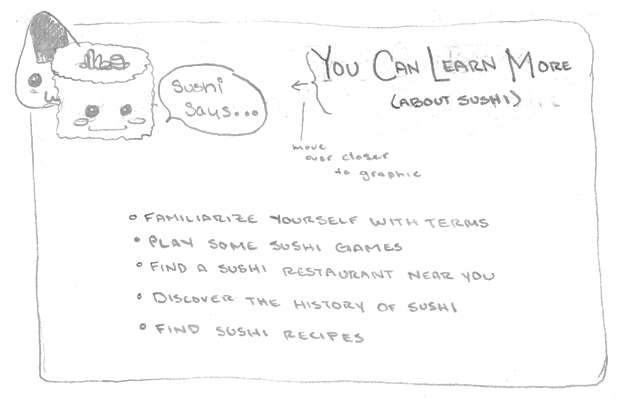 Sushi
Says...
You Can Learn More
(About Sushi)
move
over closer
to graphic
Familiarize yourself with terms
Play some sushi games
Find a sushi restaurant near you
Discover the history of sushi
Find sushi recipes